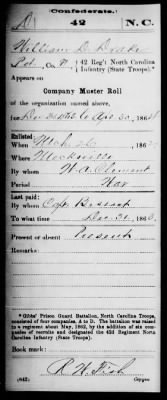 Confederate.
D 42 N.C.
William D. Drake
Pvt., Co. F, 42 Reg't North Carolina
Infantry (State Troops).*
Appears on
Company Muster Roll
of the organization named above,
for to Dec 31, 186
Enlisted:
When Mch 26, 186
Where Mocksville
By whom W. A. Clement
Period War
Last paid:
By whom Capt. Bessent
To what time Dec 31, 186
Present or absent Present
Remarks:
*Gibbs' Prison Guard Battalion, North Carolina Troops,
consisted of four companies, A to D. The battalion was raised
to a regiment about May, 1862, by the addition of six com-
panies of recruits and designated the 42d Regiment North
Carolina Infantry (State Troops).
Book mark:
R. W. Fish
(642) Copyist.